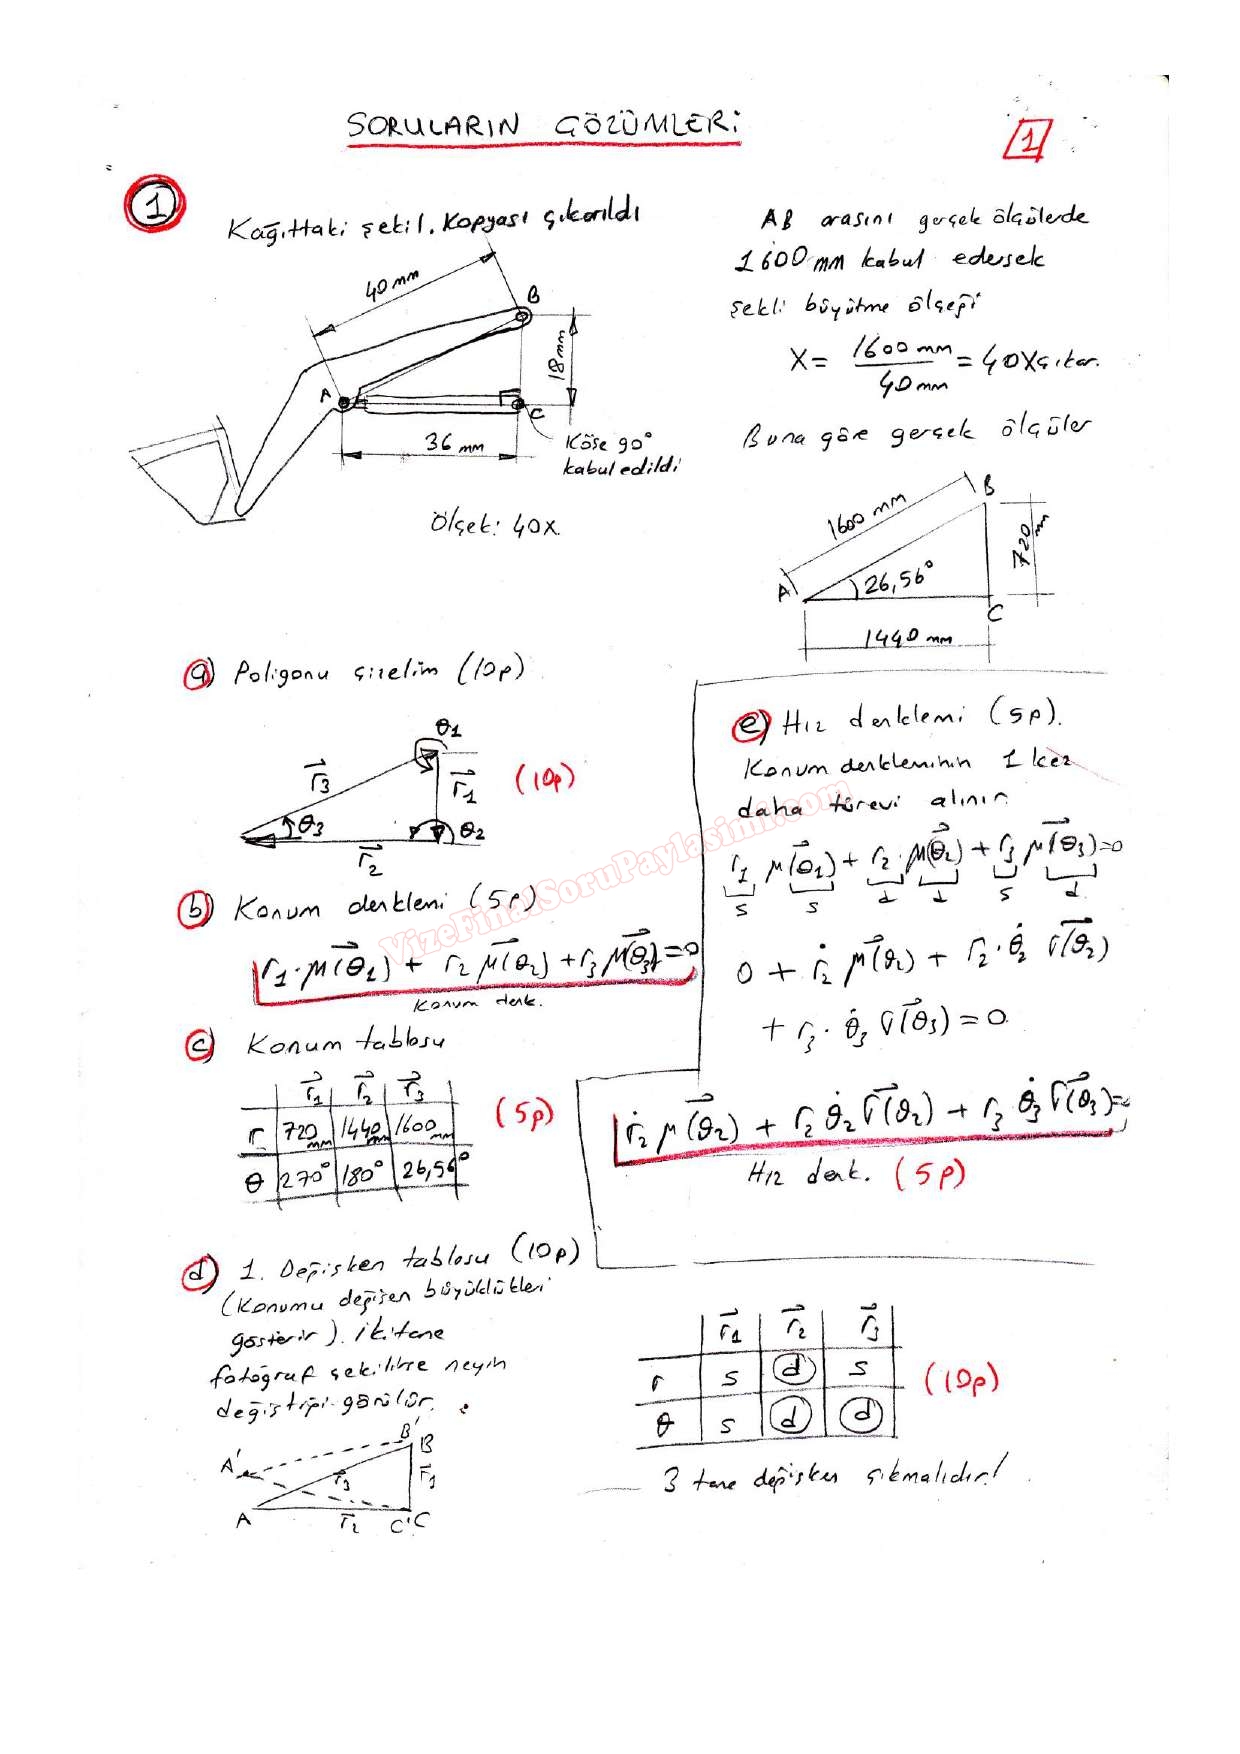 SORULARIN ÇÖZÜMLERİ
1
1
Kağıttaki şekil. Kopyası çıkarıldı
40 mm
B
18mm
A
C
36 mm
Köşe 90°
kabul edildi
Ölçek: 40X
AB arasını gerçek ölçülerde
1600 mm kabul edersek
Şekli büyütme ölçeği
X = 1600 mm / 40 mm = 40X çıkar.
Buna göre gerçek ölçüler
1600 mm
B
720 mm
A
26,56°
C
1440 mm
a) Poligonu çizelim (10p)
θ1
r3
r1
(10p)
θ3
θ2
r2
b) Konum denklemi (5p)
r1·μ(θ1) + r2 μ(θ2) + r3 μ(θ3) = 0
Konum denk.
c) Konum tablosu
r1 r2 r3
r 720 mm 1440 mm 1600 mm
θ 270° 180° 26,56°
(5p)
d) 1. Değişken tablosu (10p)
(Konumu değişen büyüklükleri
gösterir). İki tane
fotoğraf çekilirse neyin
değiştiği görülür.
A' B' B
r3 r1
A r2 C' C
e) Hız denklemi (5p).
Konum denkleminin 1 kez
daha türevi alınır
r1 μ(θ1) + r2·μ(θ2) + r3 μ(θ3) = 0
s s d d s d
0 + ṙ2 μ(θ2) + r2·θ̇2 V(θ2)
+ r3·θ̇3 V(θ3) = 0
ṙ2 μ(θ2) + r2 θ̇2 V(θ2) + r3 θ̇3 V(θ3) =
Hız denk. (5p)
r1 r2 r3
r s d s
θ s d d
(10p)
3 tane değişken çıkmalıdır!
VizeFinalSoruPaylasimi.com